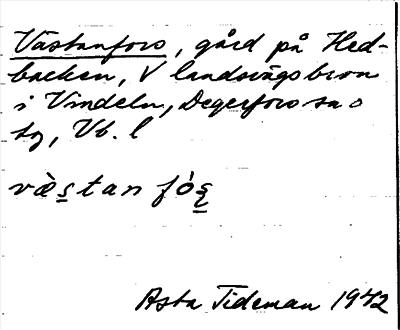 Västanfors, gård på Hed-
backen, V landsvägsbron
i Vindeln, Degerfors sn o
tg, Vb. l
væ̀stan fós̨
Asta Tideman 1942